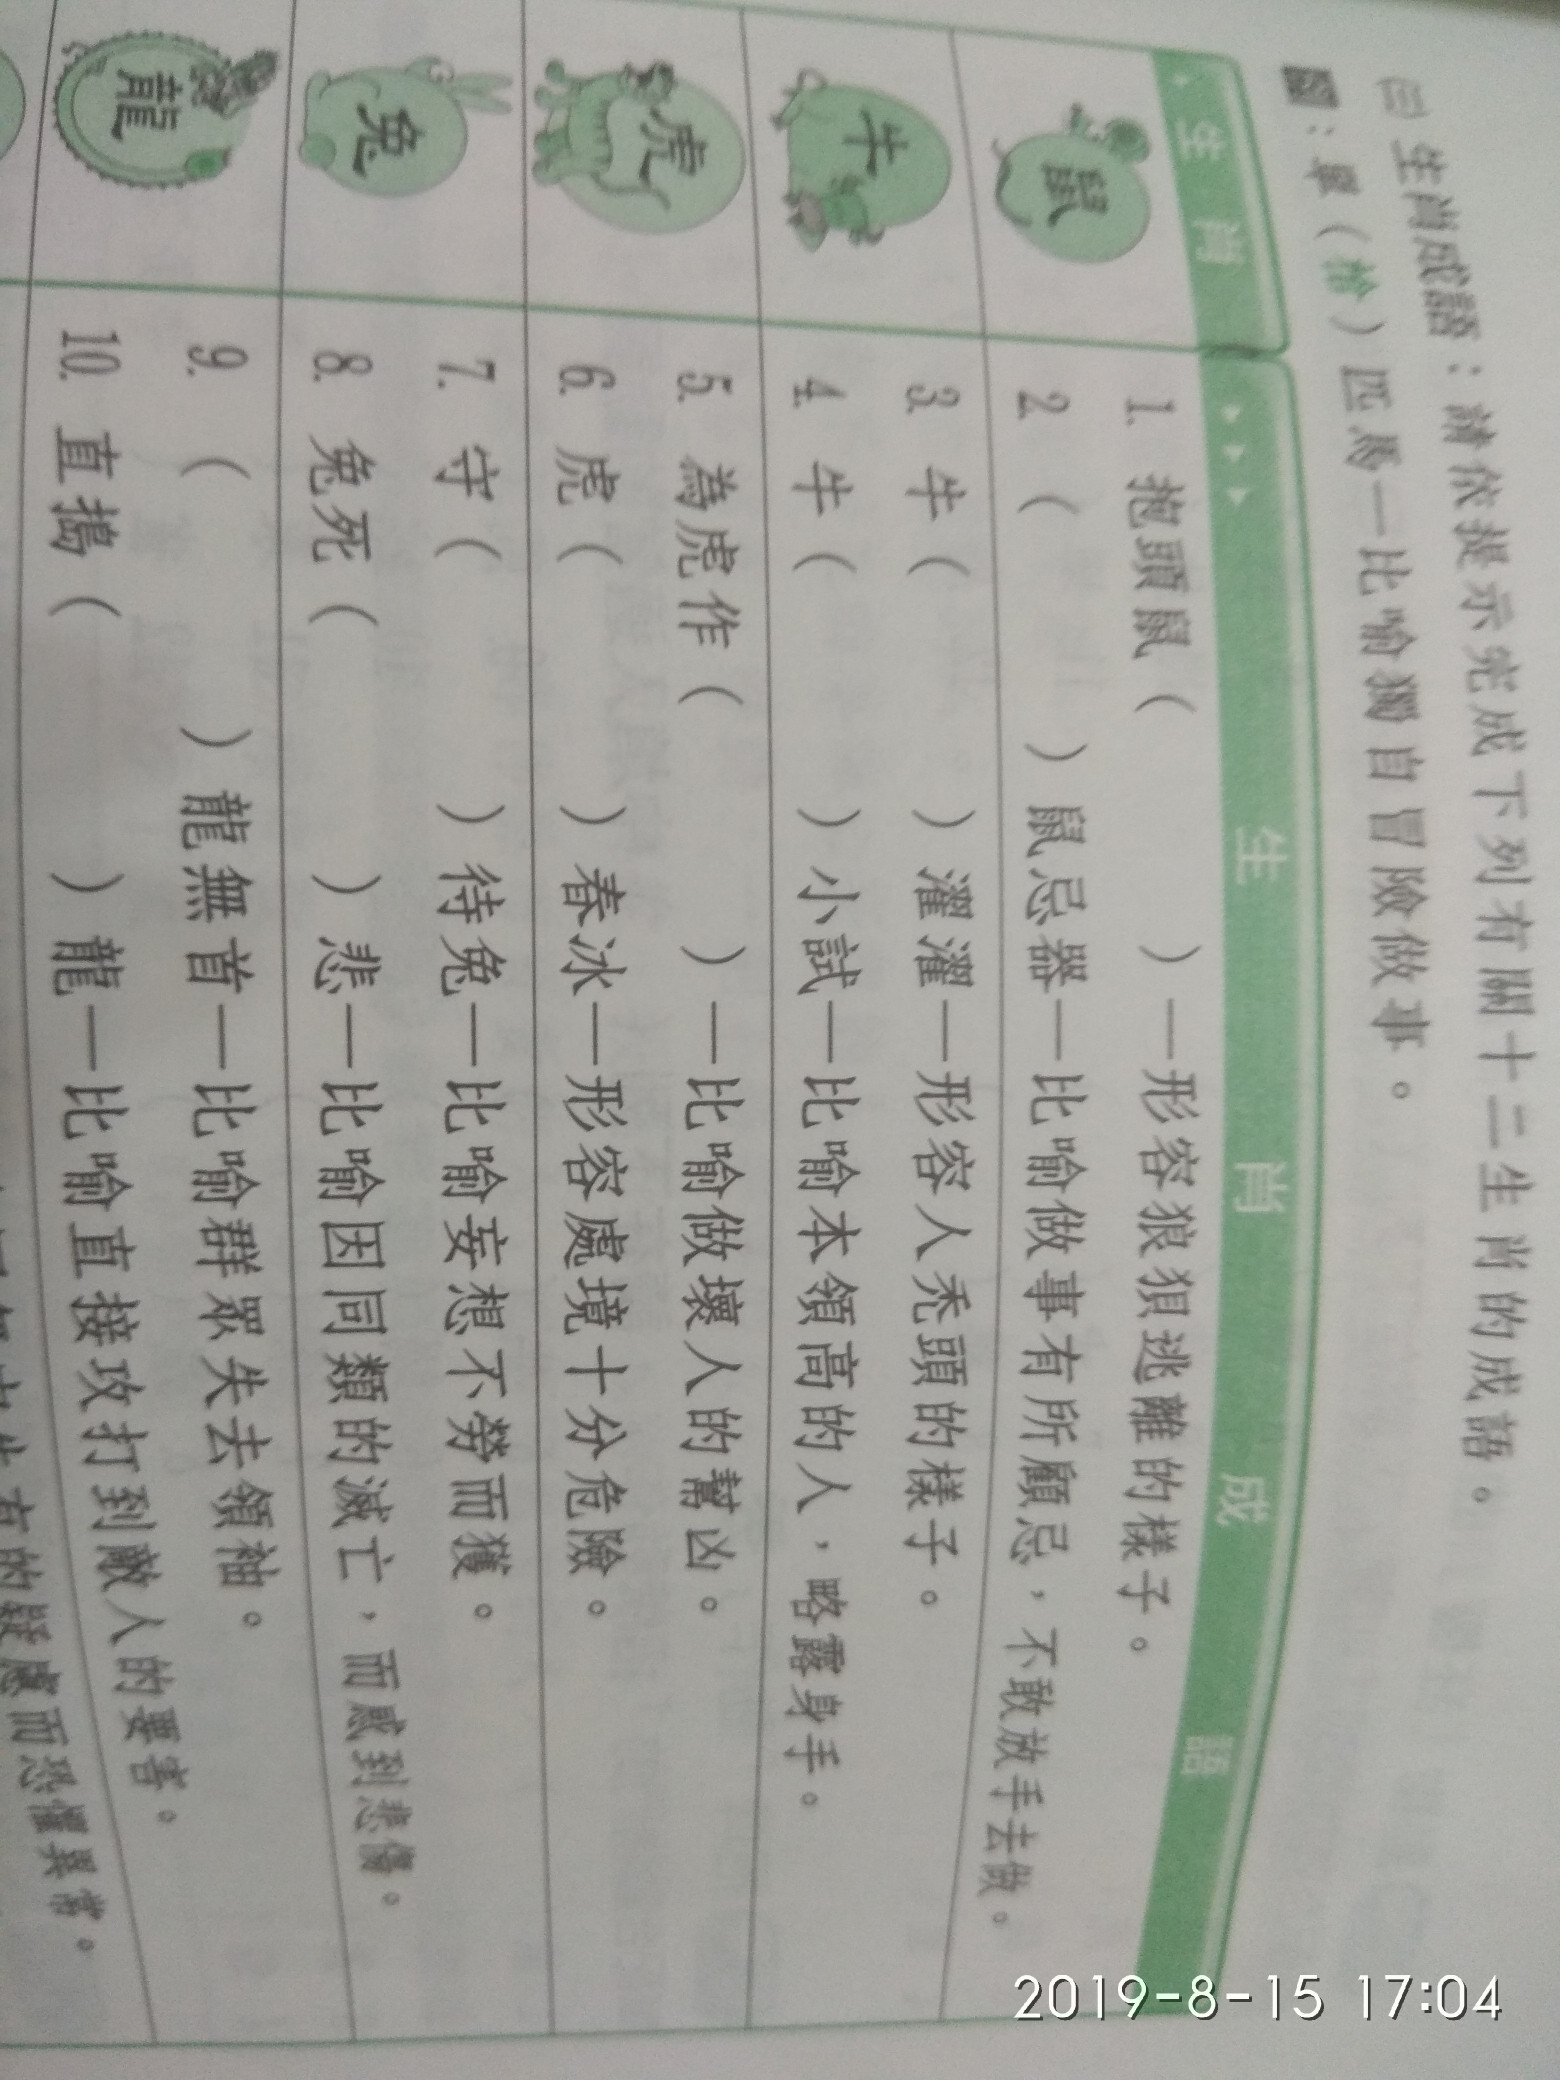 ㈡生肖成語：請依提示完成下列有關十二生肖的成語。
：單（槍）匹馬—比喻獨自冒險做事。
生肖 生肖成語
鼠
1. 抱頭鼠（ ）—形容狼狽逃離的樣子。
2. （ ）鼠忌器—比喻做事有所顧忌，不敢放手去做。
牛
3. 牛（ ）濯濯—形容人禿頭的樣子。
4. 牛（ ）小試—比喻本領高的人，略露身手。
虎
5. 為虎作（ ）—比喻做壞人的幫凶。
6. 虎（ ）春冰—形容處境十分危險。
兔
7. 守（ ）待兔—比喻妄想不勞而獲。
8. 兔死（ ）悲—比喻因同類的滅亡，而感到悲傷。
龍
9. （ ）龍無首—比喻群眾失去領袖。
10. 直搗（ ）龍—比喻直接攻打到敵人的要害。
的疑慮而恐懼異常。
2019-8-15 17:04